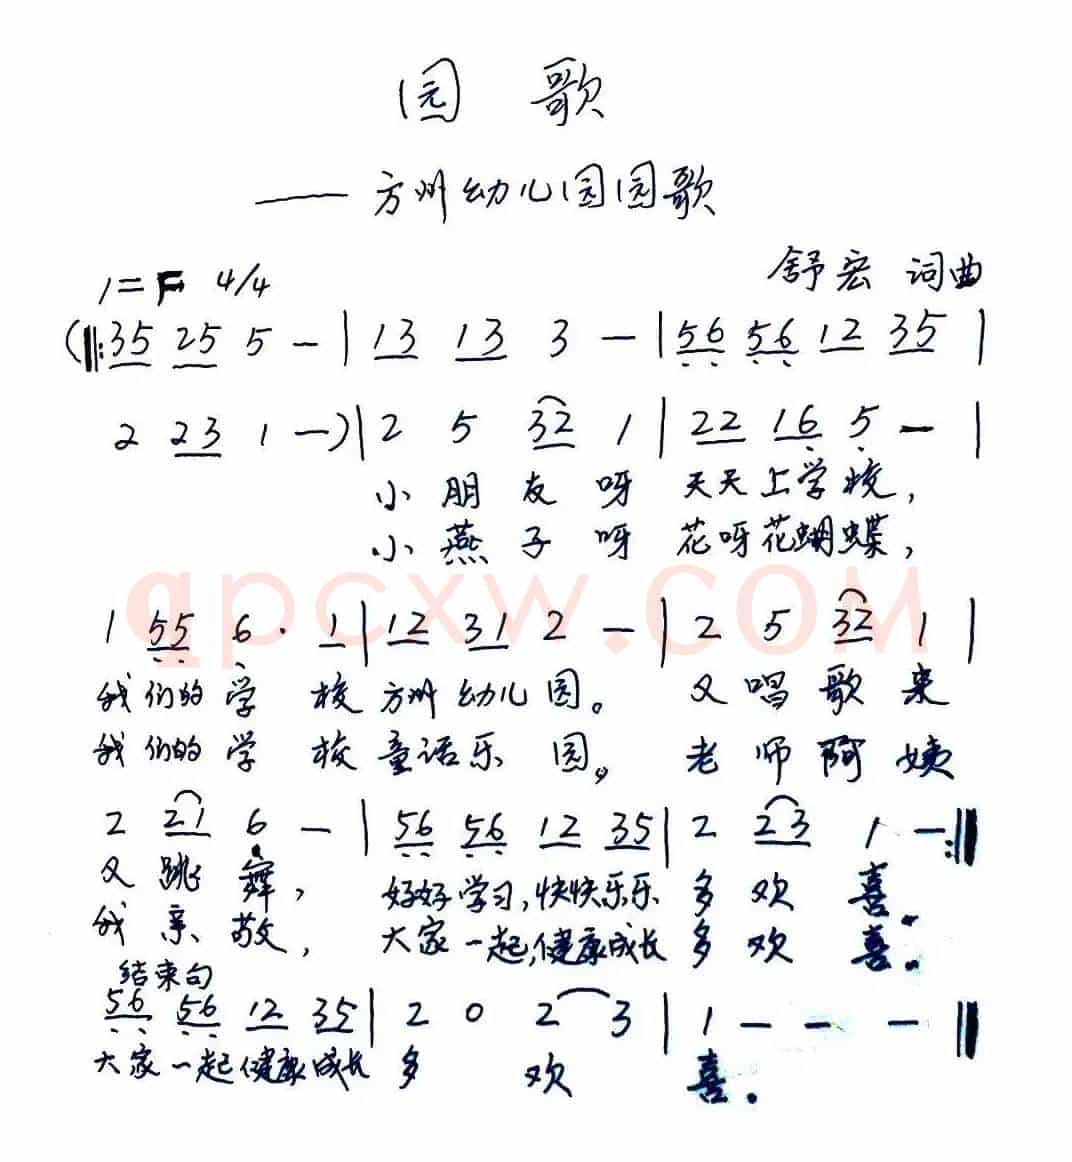 园 歌
—— 方州幼儿园园歌
1=F 4/4 舒宏 词曲
(‖: 35 25 5 – | 13 13 3 – | 56 56 12 35 |
2 23 1 –) | 2 5 32 1 | 22 16 5 – |
小朋友呀 天天上学校,
小燕子呀 花呀花蝴蝶,
qpcxw.COM
1 55 6 · 1 | 12 31 2 – | 2 5 32 1 |
我们的学 校 方州幼儿园。 又唱歌来
我们的学 校 童话乐园。 老师阿姨
2 21 6 – | 56 56 12 35 | 2 23 1 – :‖
又跳舞, 好好学习,快快乐乐 多欢喜.
我亲敬, 大家一起,健康成长 多欢喜.
结束句
56 56 12 35 | 2 0 2 3 | 1 – – – ‖
大家一起健康成长 多 欢 喜.